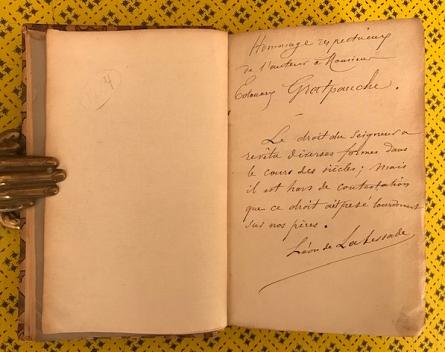 4
Hommage respectueux
de l'auteur à Monsieur
Edouard Gratpanche.
Le droit du seigneur a
revêtu diverses formes dans
le cours des siècles ; mais
il est hors de contestation
que ce droit ait pesé lourdement
sur nos pères.
Léon de La Bessade